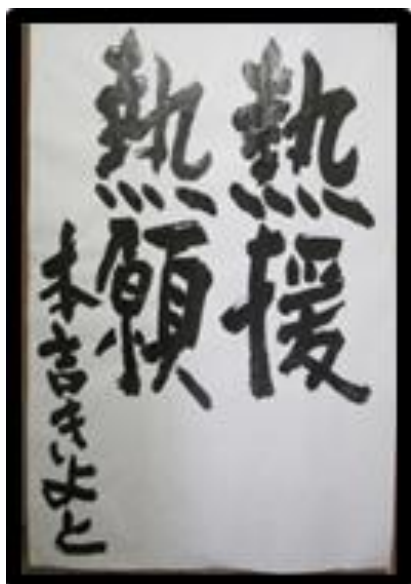 熱援
熱願
本吉きいよと